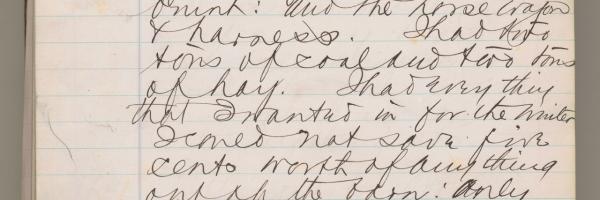 And the horse wagon
& harness. I had two
tons of coal and two tons
of hay. I had every thing
that I wanted in for the winter
I coued not save five
cents worth of any thing
out of the barn: Only